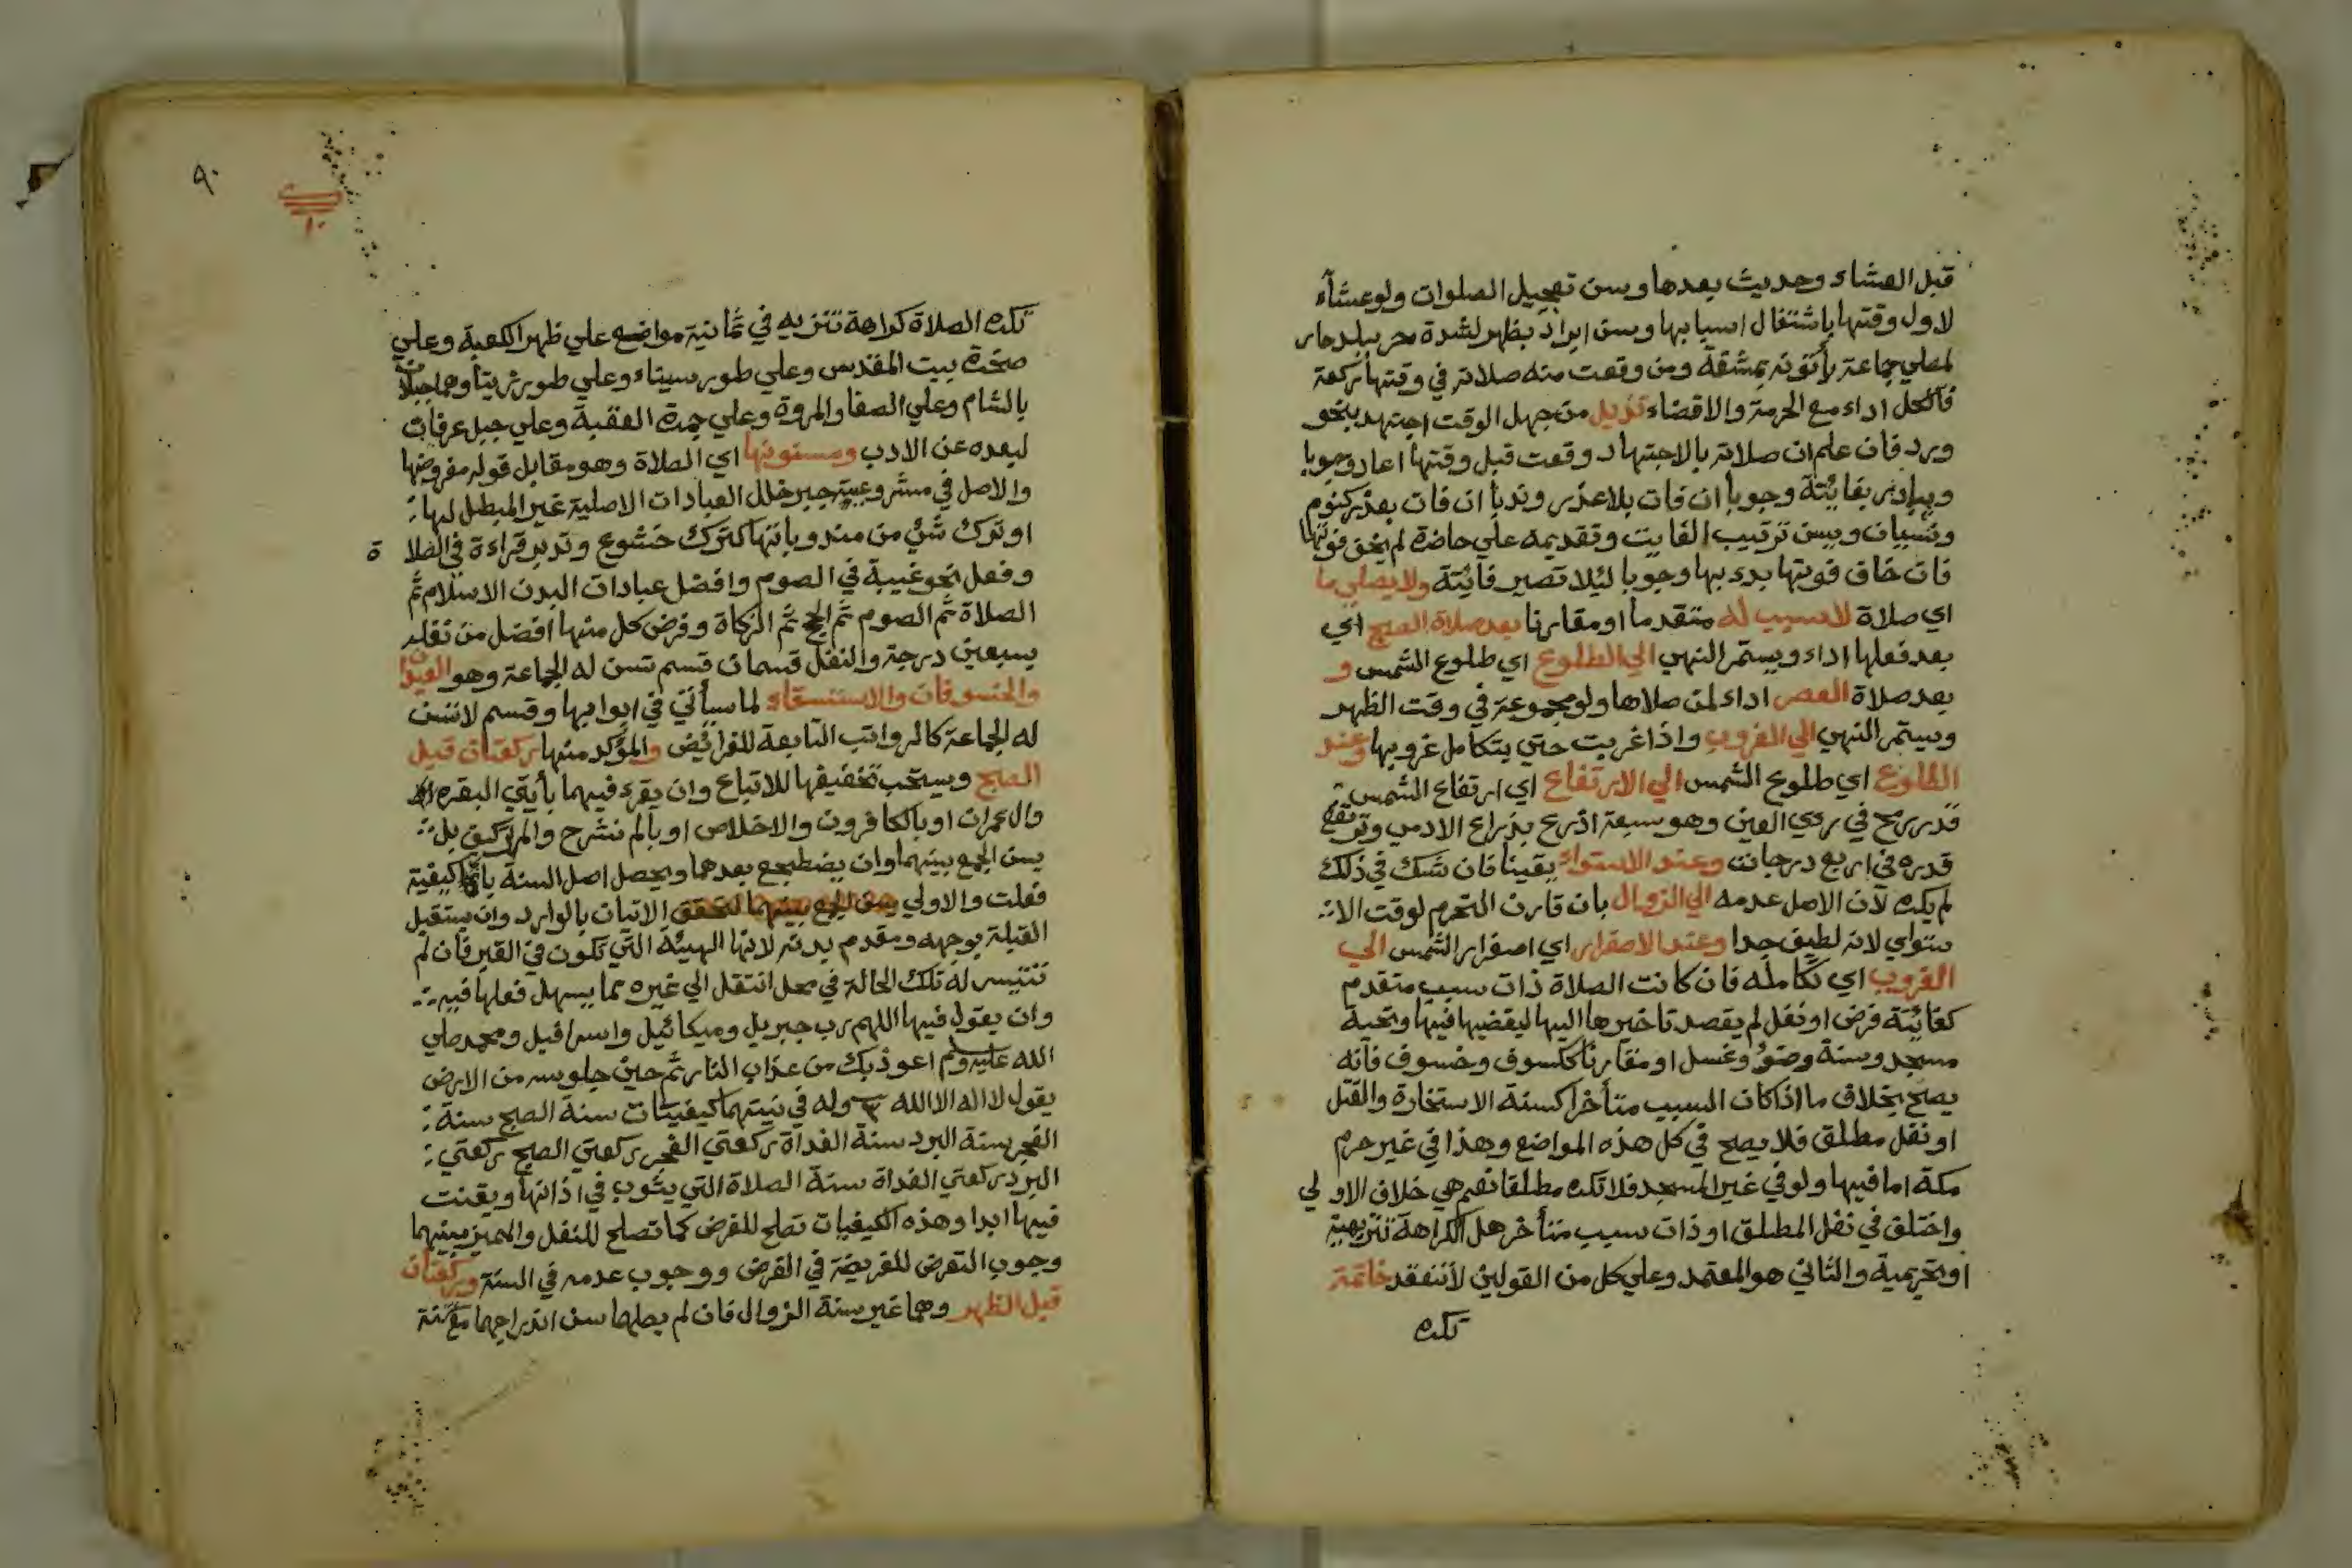 قبل العشاء وحديث بعدها ويسن تعجيل الصلوات ولو عشآء
لاول وقتها باشتغال اسبابها ويسن ابراد بظهر لشدة حر ببلد حار
لمصلي جماعة يأتونه بمشقة ومن وقعت منه صلاته في وقتها ركعة
فالكل اداء مع الحرمة والا قضاء تذييل من جهل الوقت اجتهد بنحو
ورد فان علم ان صلاته بالاجتهاد وقعت قبل وقتها اعاد وجوبا
ويبادر بفائتة وجوبا ان فات بلا عذر وندبا ان فات بعذر كنوم
ونسيان ويسن ترتيب الفايت وتقديمه علي حاضرة لم يخف فوتها
فان خاف فوتها بدء بها وجوبا ليلا تصير فائتة ولا يصلي ما
اي صلاة لا سبب له متقدما او مقارنا بعد صلاة الصبح اي
بعد فعلها اداء ويستمر النهي الي الطلوع اي طلوع الشمس و
بعد صلاة العصر اداء لمن صلاها ولو مجموعة في وقت الظهر
ويستمر النهي الي الغروب واذا غربت حتي يتكامل غروبها وعند
الطلوع اي طلوع الشمس الي الارتفاع اي ارتفاع الشمس
قدر رمح في رءي العين وهو سبعة اذرع بذراع الادمي وترتفع
قدره في اربع درجات وعند الاستواء يقينا فان شك في ذلك
لم يكره لان الاصل عدمه الي الزوال بان قارن التحرم لوقت الا
ستواي لانه لطيف جدا وعند الاصفرار اي اصفرار الشمس الي
الغروب اي تكامله فان كانت الصلاة ذات سبب متقدم
كفائتة فرض او نفل لم يقصد تاخيرها اليها ليقضيها فيها وتحية
مسجد وسنة وضوء وغسل او مقارنا ككسوف وخسوف فانه
يصح بخلاف ما اذا كان السبب متأخرا كسنة الاستخارة والقتل
او نفل مطلق فلا يصح في كل هذه المواضع وهذا في غير حرم
مكة اما فيها ولو في غير المسجد فلا تكره مطلقا نعم هي خلاف الاولي
واختلف في نفل المطلق او ذات سبب متأخر هل الكراهة تنزيهية
او تحريمية والثاني هو المعتمد وعلي كل من القولين لا تنعقد خاتمة
تكره
٩٠
تكره الصلاة كراهة تنزيه في ثمانية مواضع علي ظهر الكعبة وعلي
صخرة بيت المقدس وعلي طور سيناء وعلي طور زيتا وهما جبلان
بالشام وعلي الصفا والمروة وعلي جمرة العقبة وعلي جبل عرفات
لبعده عن الادب ومسنونها اي الصلاة وهو مقابل قوله مفروضها
والاصل في مشروعيته جبر خلل العبادات الاصلية غير المبطل لها
او ترك شئ من مندوباتها كترك خشوع وتدبر قراءة في الصلاة
وفعل نحو غيبة في الصوم وافضل عبادات البدن الاسلام ثم
الصلاة ثم الصوم ثم الحج ثم الزكاة وفرض كل منها افضل من نفله
بسبعين درجة والنفل قسمان قسم تسن له الجماعة وهو العيدان
والخسوفان والاستسقاء لما سيأتي في ابوابها وقسم لا تسن
له الجماعة كالرواتب التابعة للفرائض والمؤكد منها ركعتان قبل
الصبح ويستحب تخفيفها للاتباع وان يقرء فيهما بأيتي البقره
وال عمران او بالكافرون والاخلاص او بالم نشرح والم تركيف بل
يسن الجمع بينهما وان يضطجع بعدهما ويحصل اصل السنة باي كيفية
فعلت والاولي يسن الجمع بينهما لتحقق الاتيان بالوارد وان يستقبل
القبلة بوجهه ومقدم بدنه لانها الهيئة التي تكون في القبر فان لم
تتيسر له تلك الحالة في محل انتقل الي غيره مما يسهل فعلها فيه
وان يقول فيها اللهم رب جبريل وميكائيل واسرافيل ومحمد صلي
الله عليه وسلم اعوذ بك من عذاب النار ثم حين جلوسه من الارض
يقول لا اله الا الله وله في نيتهما كيفيتات سنة الصبح سنة
الفجر سنة البرد سنة الغداة ركعتي الفجر ركعتي الصبح ركعتي
البرد ركعتي الغداة سنة الصلاة التي يثوب في اذانها ويقنت
فيها ابدا وهذه الكيفيات تصلح للفرض كما تصلح للنفل والمميز بينهما
وجوب التعرض للفريضة في الفرض ووجوب عدمه في السنة وركعتان
قبل الظهر وهما غير سنة الزوال فان لم يصلهما سن اندراجهما مع سنة